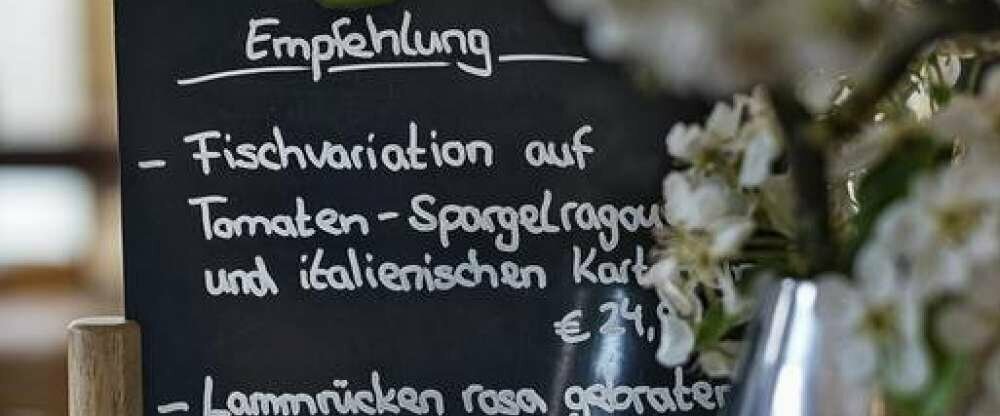 Empfehlung
- Fischvariation auf
Tomaten-Spargelragou
und italienischen Kart
€ 24,
- Lammrücken rosa gebraten